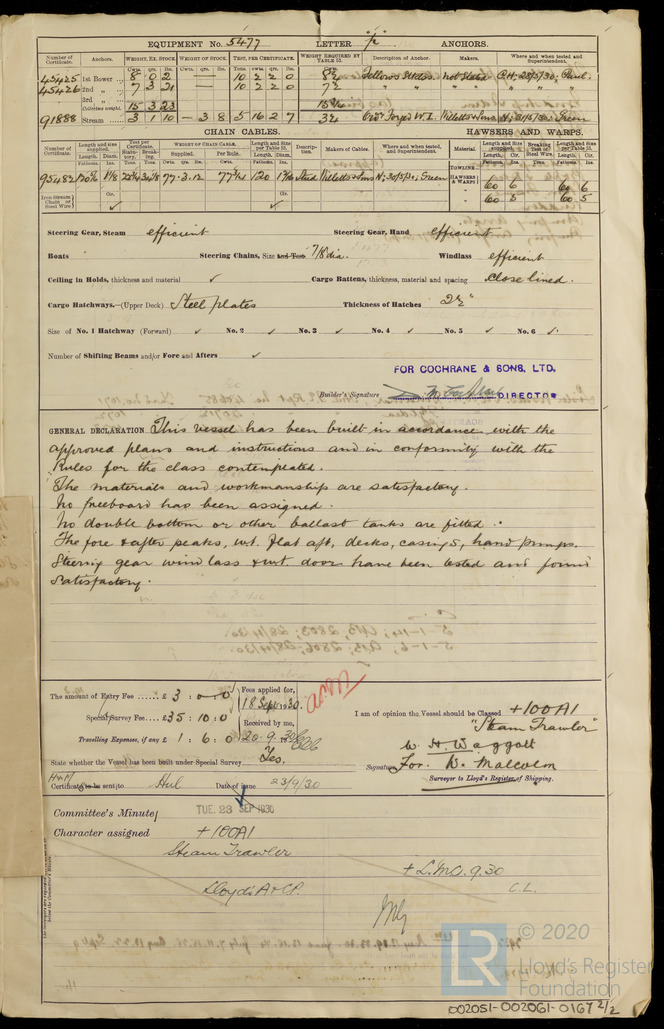 EQUIPMENT No. 5477 LETTER "p" ANCHORS.
Number of Certificate. Anchors. WEIGHT, EX. STOCK WEIGHT OF STOCK. TEST, PER CERTIFICATE. WEIGHT REQUIRED BY TABLE 53. Description of Anchor. Makers. Where and when tested and Superintendent.
Cwts. qrs. lbs. Cwts. qrs. lbs. Tons. cwts. qrs. lbs.
45425 1st Bower 8 0 2 — 10 2 2 0 8½ not Stated C.H; 28/5/30; Paul.
45426 2nd „ 7 3 21 — 10 2 2 0 7½ " " " "
3rd „
Collective weight. 15 3 23
91888 Stream 3 1 10 — 3 8 5 16 2 7 3¼ Willetts & Sons N; 31/5/30; Green
CHAIN CABLES. HAWSERS AND WARPS.
Number of Certificate. Length and size supplied. Test per Certificate. WEIGHT OF CHAIN CABLE. Length and size per Table 53. Description. Makers of Cables. Where and when tested, and Superintendent. Material. Length and Size supplied. Breaking Test of Steel Wire. Length and Size per Table 53.
Length. Diam. Statutory. Breaking. Supplied. Per Rule. Length. Diam.
Fathoms. Ins. Tons. Tons. Cwts. qrs. lbs. Cwts. Fathoms. Ins.
TOWLINE
95482 120 77.3.12 77¾ 120 Stud Willetts & Sons N; 30/5/30; Green HAWSERS & WARPS 60 6 60 6
" 60 5 60 5
Iron Stream Chain or Steel Wire Cir. ✓ Cir. ✓
Steering Gear, Steam efficient Steering Gear, Hand efficient
Boats Steering Chains, Size and Test 7/8 dia. Windlass efficient
Ceiling in Holds, thickness and material ✓ Cargo Battens, thickness, material and spacing close lined.
Cargo Hatchways.—(Upper Deck) Steel plates Thickness of Hatches 2½"
Size of No. 1 Hatchway (Forward) ✓ No. 2 ✓ No. 3 ✓ No. 4 ✓ No. 5 ✓ No. 6 ✓
Number of Shifting Beams and/or Fore and Afters ✓
FOR COCHRANE & SONS, LTD.
Builder's Signature DIRECTOR
GENERAL DECLARATION This vessel has been built in accordance with the
approved plans and instructions and in conformity with the
Rules for the class contemplated.
The materials and workmanship are satisfactory.
No freeboard has been assigned.
No double bottom or other ballast tanks are fitted.
The fore & after peaks, w.t. flat aft, decks, casings, hand pumps.
Steering gear windlass & w.t. door have been tested and found
satisfactory.
The amount of Entry Fee £ 3 : 0 : 0 Fees applied for,
18 Sept 1930.
Special Survey Fee £35 : 10 : 0 Received by me,
Travelling Expenses, if any £ 1 : 6 : 0 20.9.30
State whether the Vessel has been built under Special Survey Yes.
I am of opinion the Vessel should be Classed +100A1
"Steam Trawler"
W. H. Waggott
Signature For. W. Malcolm
Surveyor to Lloyd's Register of Shipping.
Certificate to be sent to Hul Date of issue 23/9/30
Committee's Minute TUE. 23 SEP 1930
Character assigned +100A1
Steam Trawler
+ L.M.C. 9.30
Lloyds A & CP. C.L.
© 2020
LR
Lloyd's Register
Foundation
002051-002061-0167 2/2